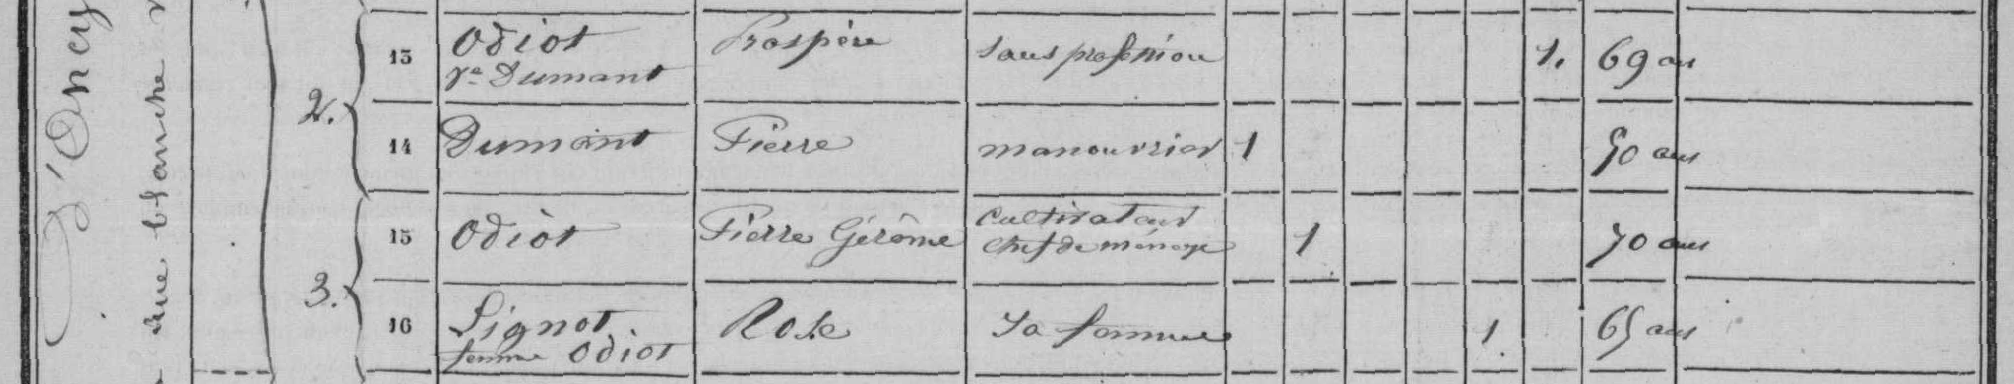 d'Oncy
rue blanche
2.
13 Odiot Prospère sans profession 1. 69 ans
ve Dumant
14 Dumant Pierre manouvrier 1 50 ans
3.
15 Odiot Pierre Gérôme cultivateur 1 70 ans
chef de ménage
16 Signot Rose sa femme 1 65 ans
femme Odiot